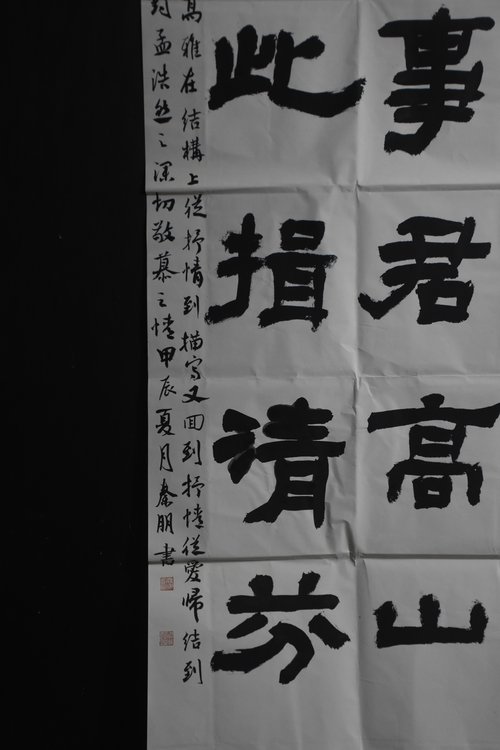 事君高山
此揖清芬
高雅在结構上從抒情到描写又回到抒情從愛歸结到
对孟浩然之深切敬慕之情甲辰夏月秦朋書